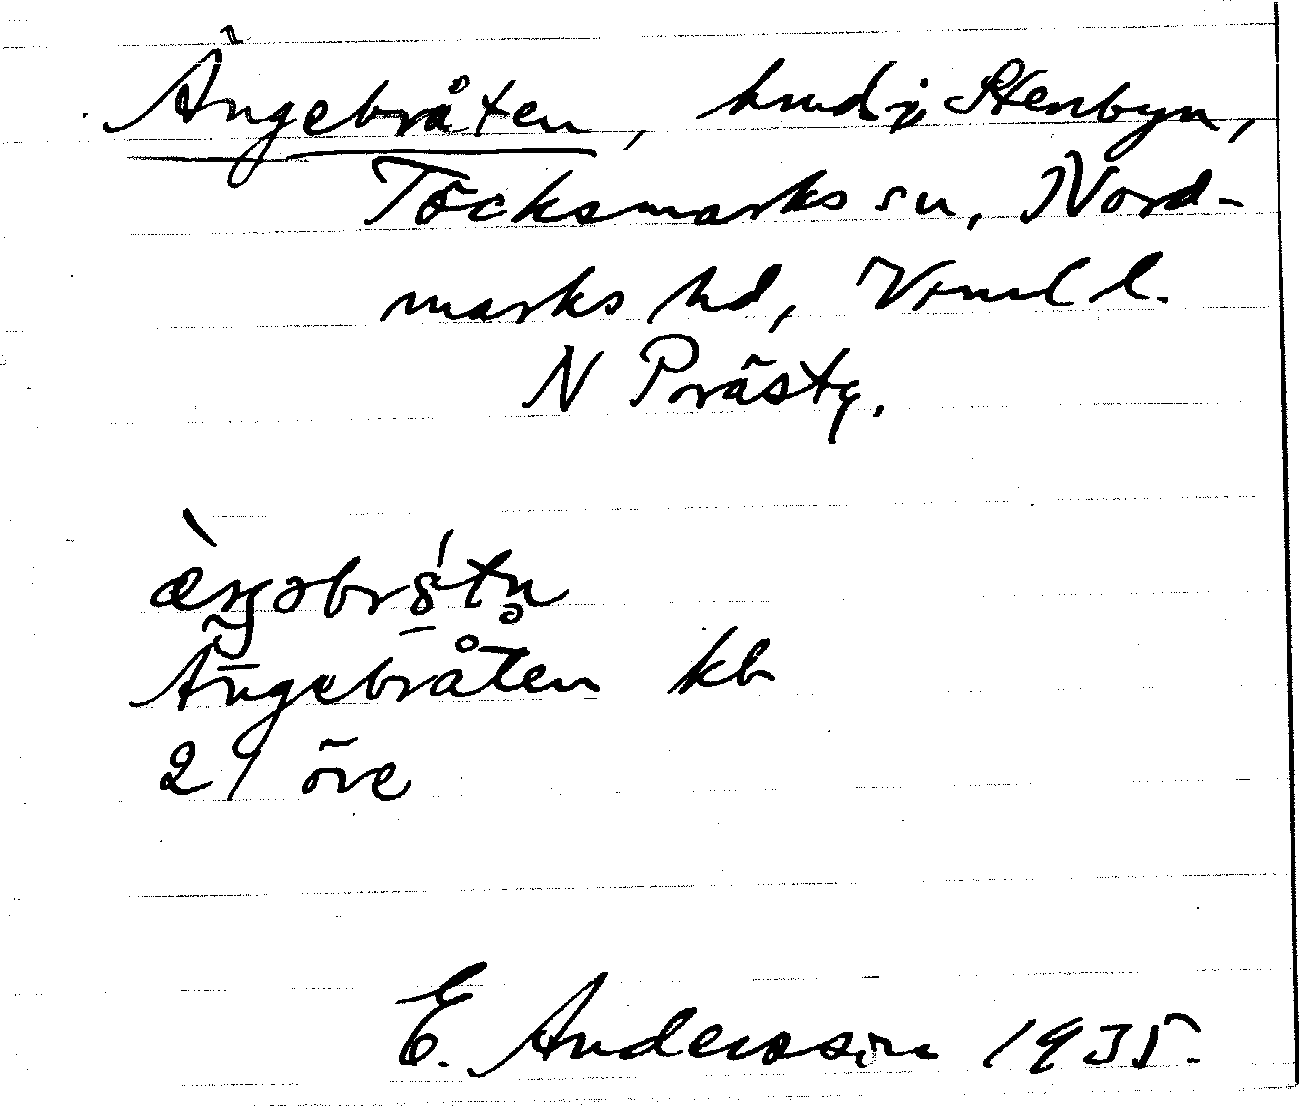 Ängebråten, hmd i Stenbyn,
Töcksmarks sn, Nord-
marks hd, Vrml l.
N Prästg.
æ̀ŋəbrǻtn̥
Ängebråten kb
27 öre
E. Andersson 1935.